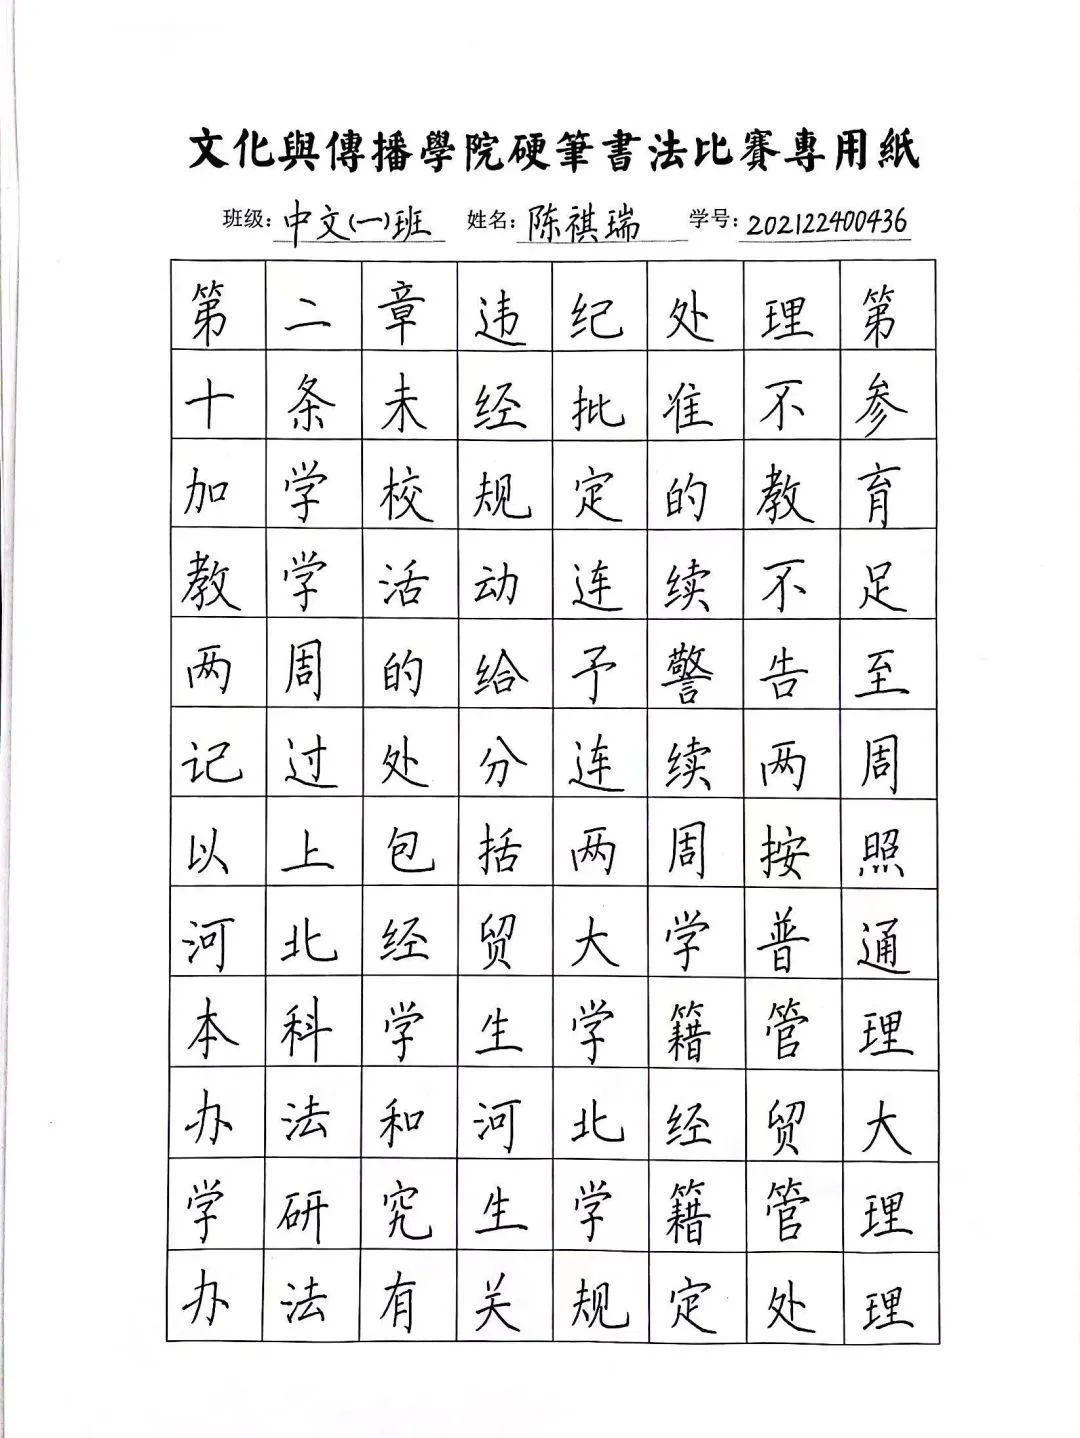 文化與傳播學院硬筆書法比賽專用紙
班级:中文(一)班 姓名:陈祺瑞 学号:202122400436
第二章违纪处理第
十条未经批准不参
加学校规定的教育
教学活动连续不足
两周的给予警告至
记过处分连续两周
以上包括两周按照
河北经贸大学普通
本科学生学籍管理
办法和河北经贸大
学研究生学籍管理
办法有关规定处理